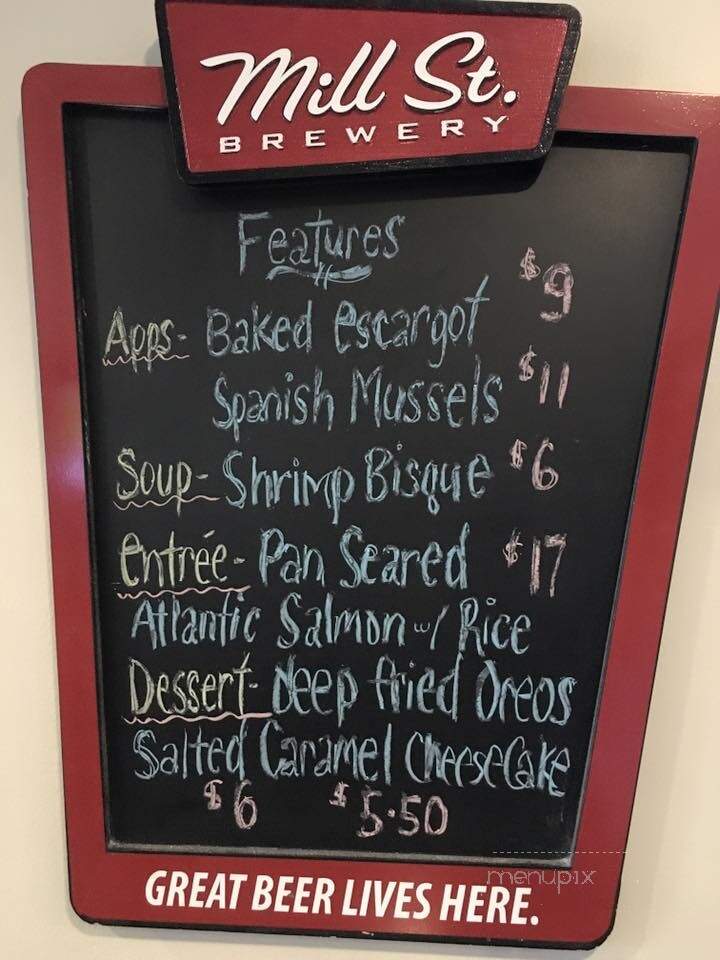 Mill St.
BREWERY
Features
Apps- Baked escargot $9
Spanish Mussels $11
Soup- Shrimp Bisque $6
Entrée- Pan Seared $17
Atlantic Salmon w/ Rice
Dessert- Deep fried Oreos
Salted Caramel CheeseCake
$6 $5.50
menupix
GREAT BEER LIVES HERE.